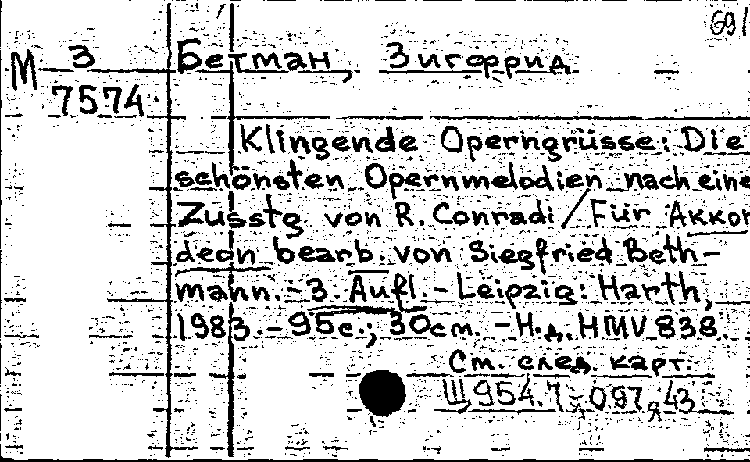 69/
М 3
7574
Бетман, Зигфрид
Klingende Operngrüsse: Die
schönsten Opernmelodien nach eine
Zusstg von R. Conradi / Für Akkor
deon bearb. von Siegfried Beth-
mann. - 3. Aufl. - Leipzig: Harth,
1983. - 95 с.; 30 см. - Н.д. HMV 838.
См. след. карт.
Щ954.7-097я43